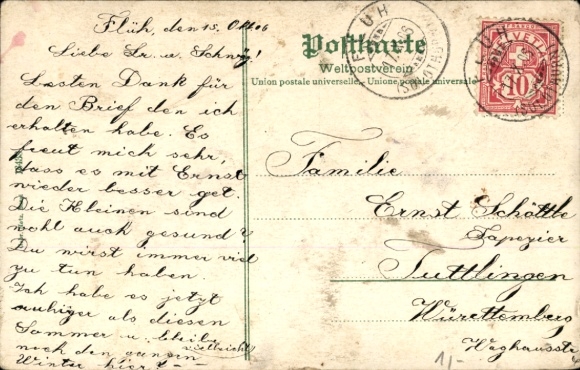 Flüh, den 15. Okt. 06
Liebe Br. u. Schwg!
Besten Dank für
den Brief den ich
erhalten habe. Es
freut mich sehr,
dass es mit Ernst
wieder besser get.
Die Kleinen sind
wohl auch gesund?
Du wirst immer viel
zu tun haben.
Ich habe es jetzt
ruhiger als diesen
Sommer u. bleibe
vielleicht
noch den ganzen
Winter hier! -
Postkarte
Weltpostverein
Union postale universelle. Unione postale universale
FLÜH
(SOLOTHURN)
FRANCO
HELVETIA
10
FLÜH
(SOLOTHURN)
Familie
Ernst Schöttle
Tapezier
Tuttlingen
Württemberg
1/-